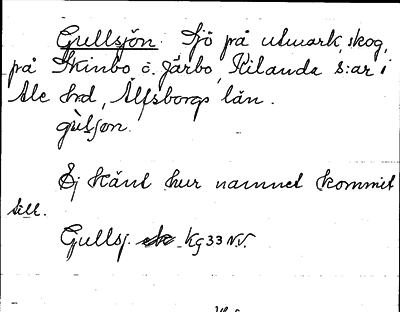 Gullsjön. Sjö på utmark, skog,
på Skinbo o. Järbo, Kilanda s:ar i
Ale hrd, Älfsborgs län.
gùlſǫn.
Ej känt hur namnet kommit
till.
Gullsj. Kg 33 N.V.